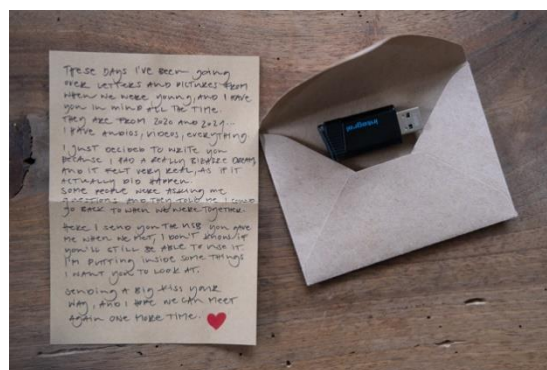 THESE DAYS I'VE BEEN GOING
OVER LETTERS AND PICTURES FROM
WHEN WE WERE YOUNG, AND I HAVE
YOU IN MIND ALL THE TIME.
THEY ARE FROM 2020 AND 2021...
I HAVE AUDIOS, VIDEOS, EVERYTHING.
I JUST DECIDED TO WRITE YOU
BECAUSE I HAD A REALLY BIZARRE DREAM
AND IT FELT VERY REAL, AS IF IT
ACTUALLY DID HAPPEN.
SOME PEOPLE WERE ASKING ME
QUESTIONS AND THEY TOLD ME I COULD
GO BACK TO WHEN WE WERE TOGETHER.
HERE I SEND YOU THE USB YOU GAVE
ME WHEN WE MET, I DON'T KNOW IF
YOU'LL STILL BE ABLE TO USE IT.
I'M PUTTING INSIDE SOME THINGS
I WANT YOU TO LOOK AT.
SENDING A BIG KISS YOUR
WAY, AND I HOPE WE CAN MEET
AGAIN ONE MORE TIME.
integral